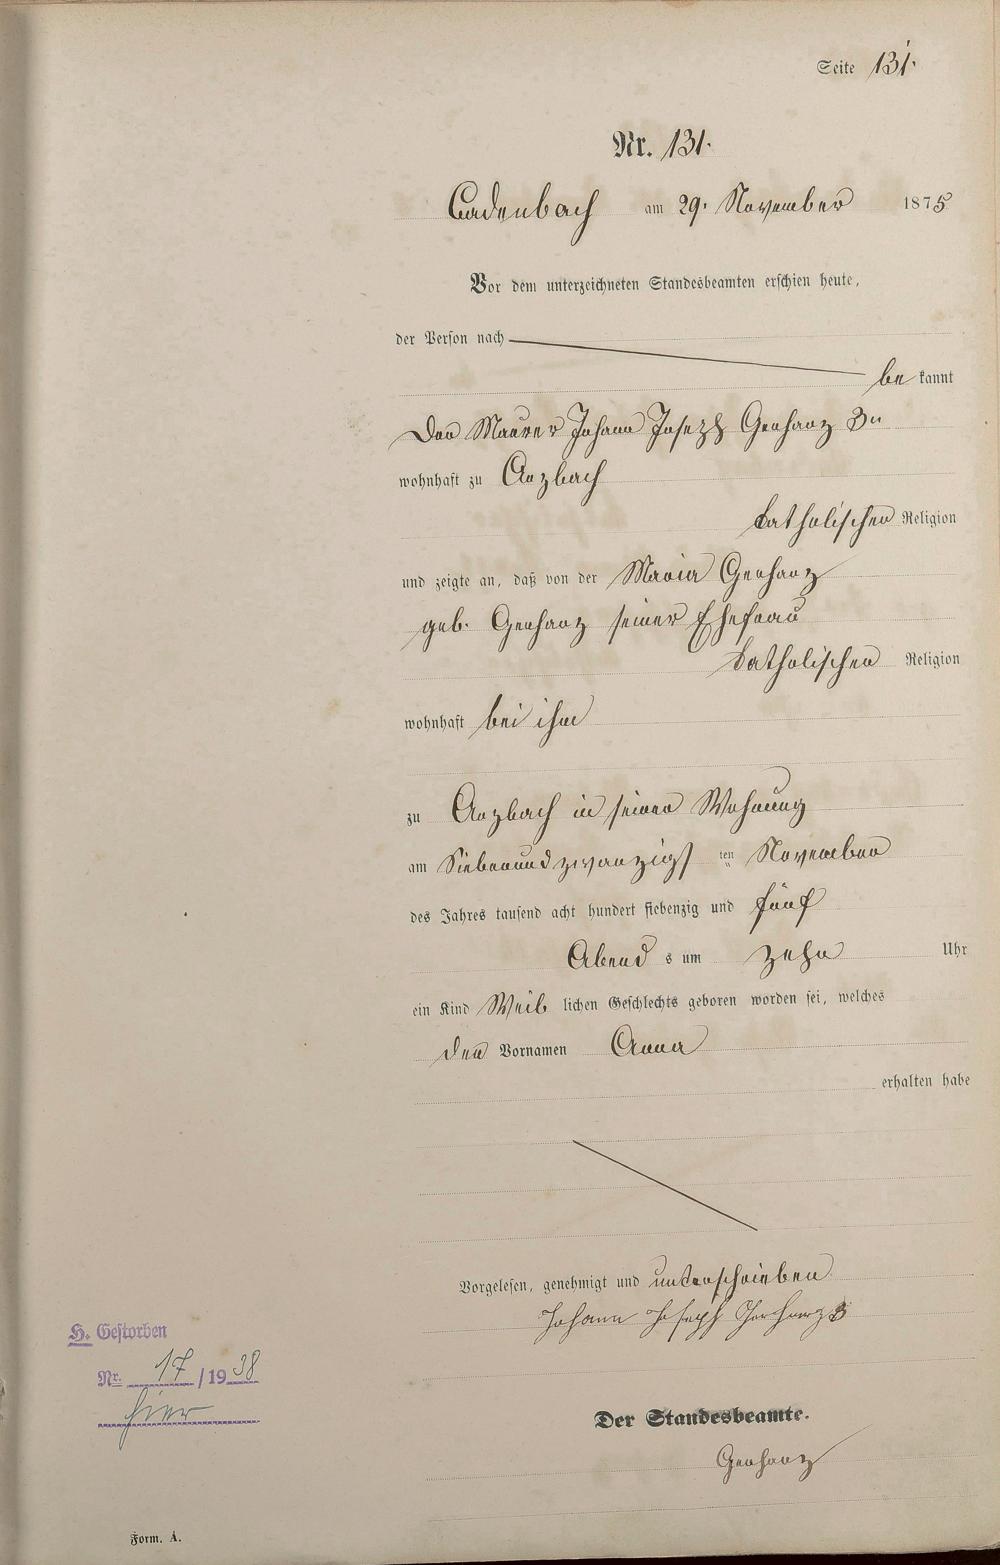 Seite 131.
Nr. 131.
Cadenbach am 29. November 1875
Vor dem unterzeichneten Standesbeamten erschien heute,
der Person nach
be kannt
Der Maurer Johann Joseph Gerharz 3n
wohnhaft zu Arzbach
katholischer Religion
und zeigte an, daß von der Maria Gerharz
geb. Gerharz seiner Ehefrau
katholischer Religion
wohnhaft bei ihm
zu Arzbach in seiner Wohnung
am Siebenundzwanzigs ten November
des Jahres tausend acht hundert siebenzig und fünf
Abend s um zehn Uhr
ein Kind Weib lichen Geschlechts geboren worden sei, welches
den Vornamen Anna
erhalten habe
Vorgelesen, genehmigt und unterschrieben
Johann Joseph Gerharz 3
H. Gestorben
Nr. 17/1938
hier
Der Standesbeamte.
Gerharz
Form. A.